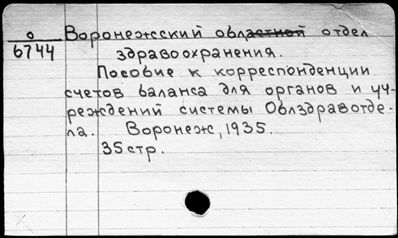 о
6744
Воронежский областной отдел
здравоохранения.
Пособие к корреспонденции
счетов баланса для органов и уч-
реждений системы Облздравотде-
ла. Воронеж, 1935.
35 стр.